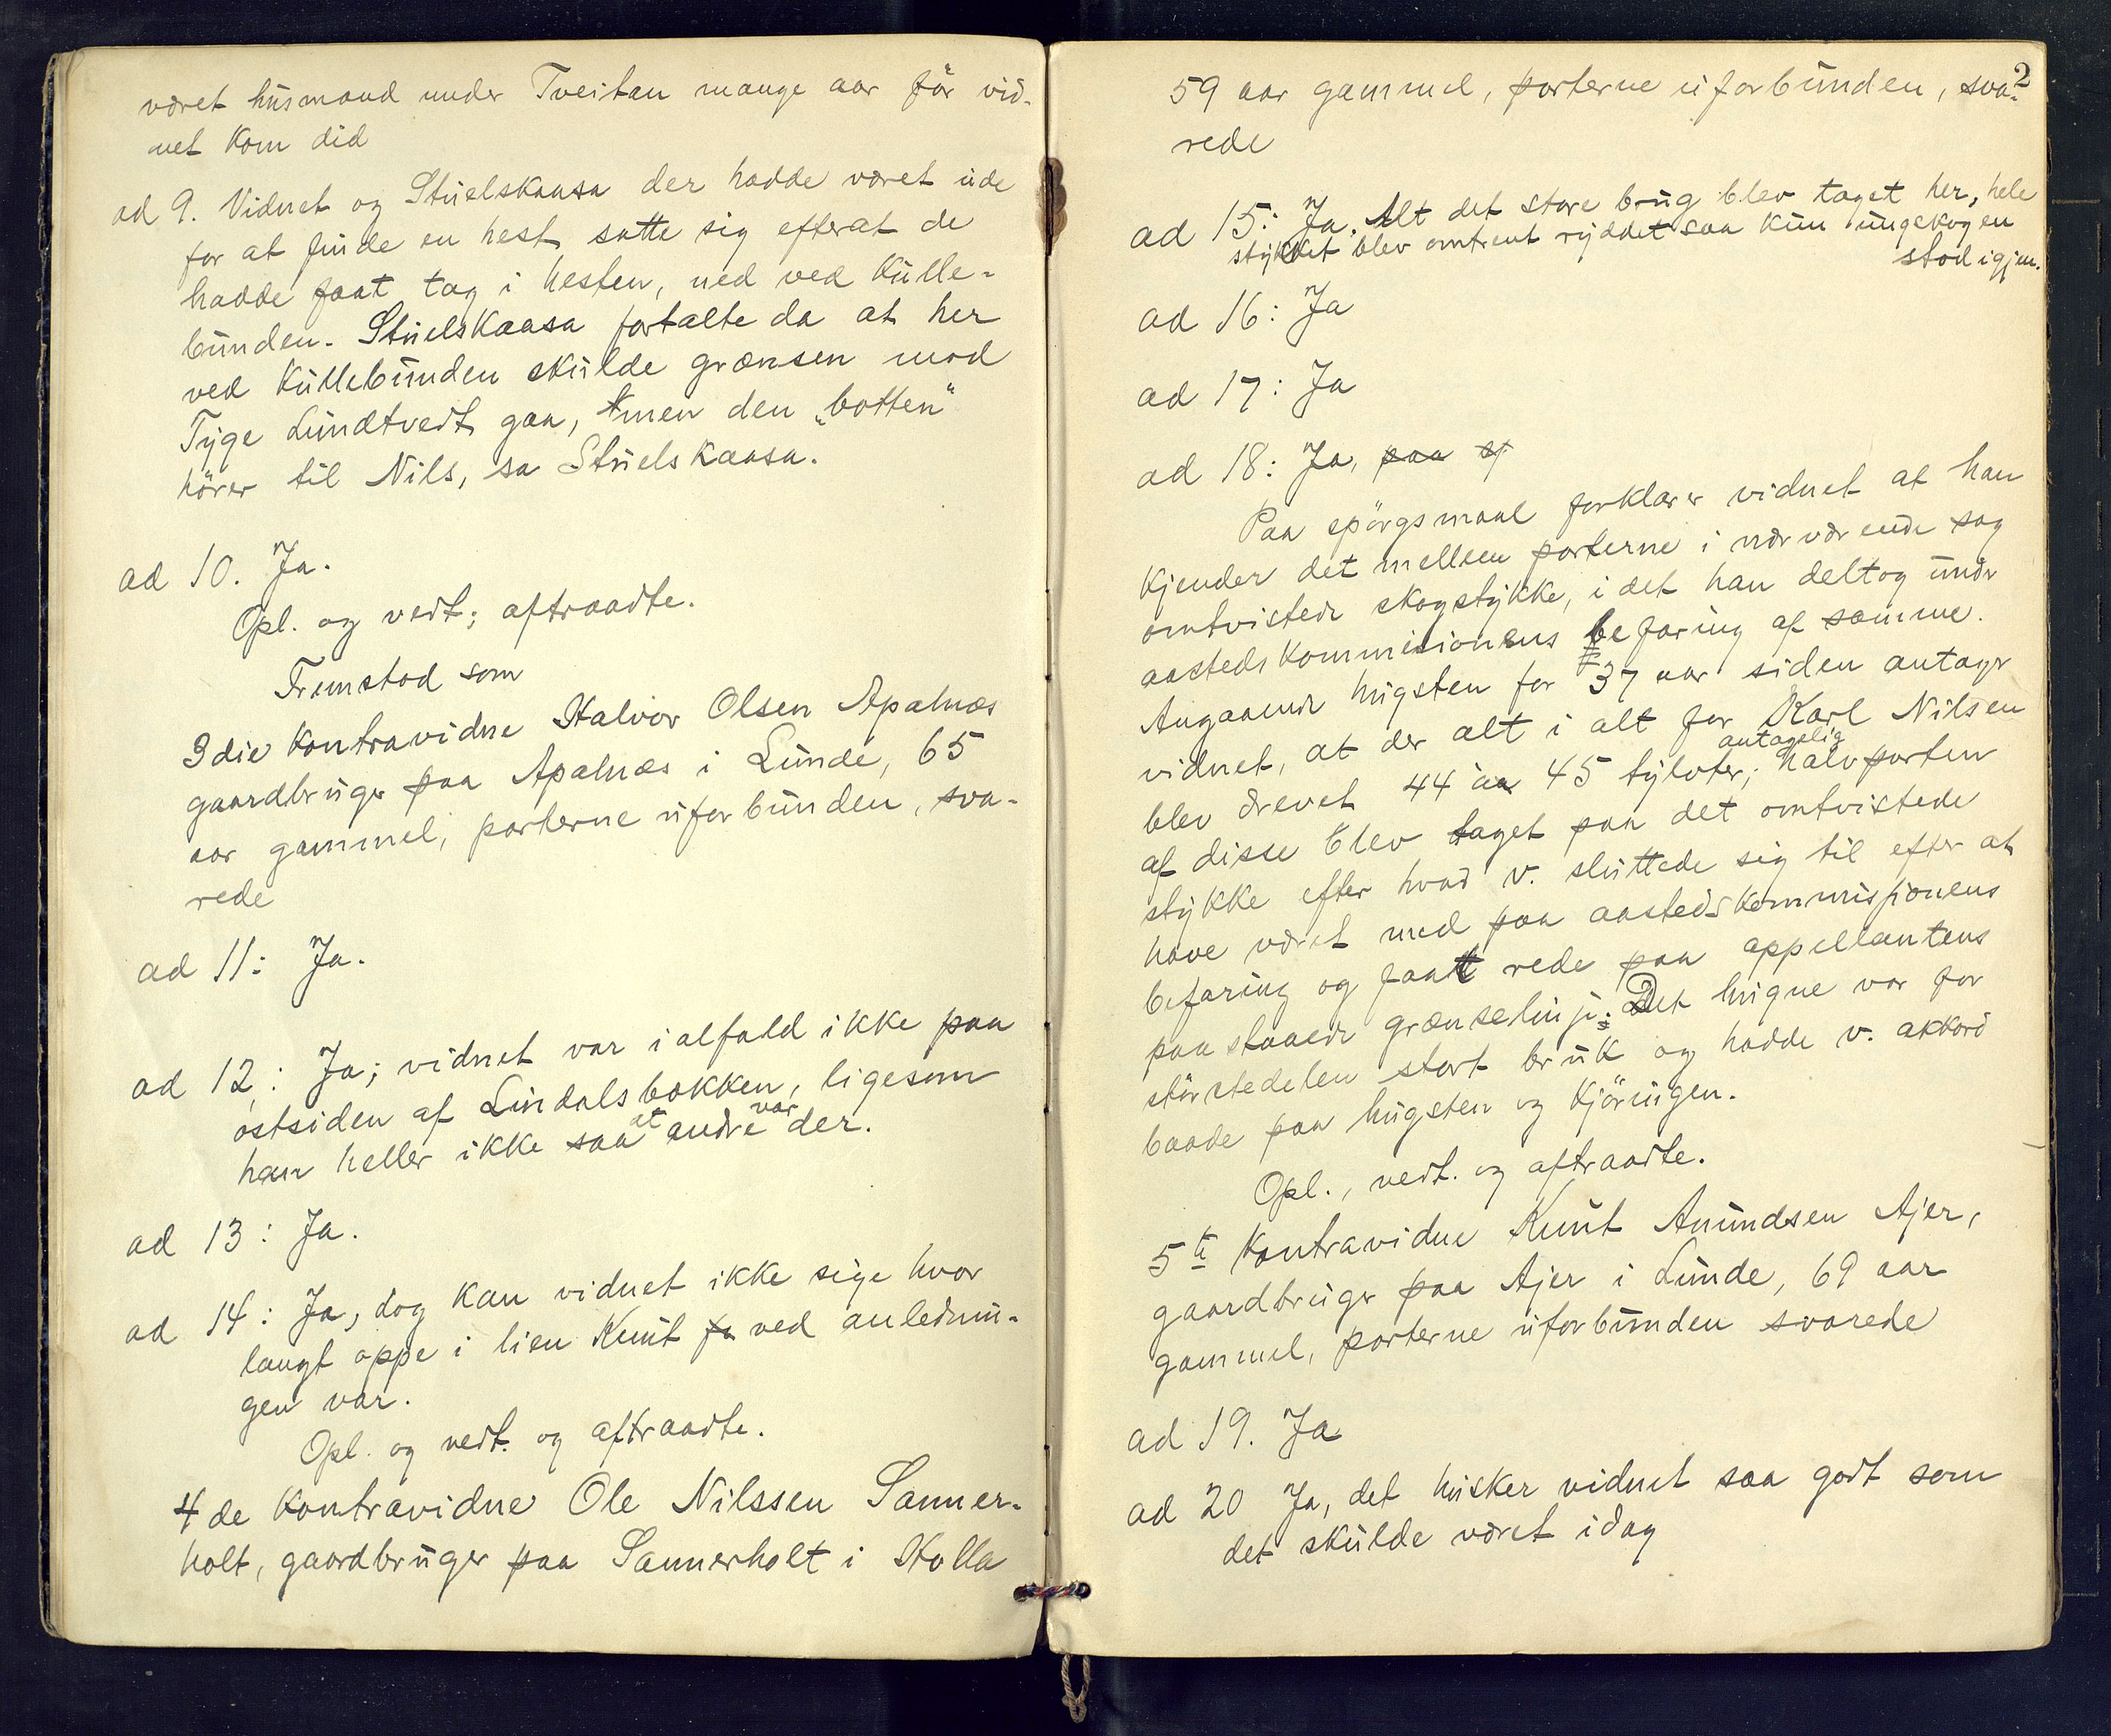 været husmand under Tveitan mange aar før vid-
net kom did
ad 9. Vidnet og Stuelskaasa der hadde været ude
for at finde en hest satte sig efterat de
hadde faat tag i hesten, ned ved Kulle-
bunden. Stuelskaasa fortalte da at her
ved Kullebunden skulde grænsen mod
Tyge Lundtvedt gaa, men den „botten"
hører til Nils, sa Stuelskaasa.
ad 10. Ja.
Opl. og vedt; aftraadte.
Fremstod som
3die Kontravidne Halvor Olsen Apalnæs
gaardbruger paa Apalnæs i Lunde, 65
aar gammel, parterne uforbunden, sva-
rede
ad 11: Ja.
ad 12: Ja; vidnet var ialfald ikke paa
østsiden af Lindalsbækken, ligesom
han heller ikke saa at andre var der.
ad 13: Ja.
ad 14: Ja, dog kan vidnet ikke sige hvor
langt oppe i lien Knut fa ved anlednin-
gen var.
Opl. og vedt. og aftraadte.
4de Kontravidne Ole Nilssen Sanner-
holt, gaardbruger paa Sannerholt i Holla
2
59 aar gammel, parterne uforbunden, sva-
rede
ad 15: Ja. Alt det store brug blev taget her, hele
stykket blev omtrent ryddet saa kun ungskogen
stod igjen.
ad 16: Ja
ad 17: Ja
ad 18: Ja, paa sp
Paa spørgsmaal forklarer vidnet at han
kjender det mellem parterne i nærværende sag
omtvistede skogstykke, i det han deltog under
aastedskommisionens befaring af samme.
Angaaende hugsten for 37 aar siden antager
vidnet, at der alt i alt for Karl Nilsen
blev drevet 44 à 45 tylvter; antagelig halvparten
af disse blev taget paa det omtvistede
stykke efter hvad v. sluttede sig til efter at
have været med paa aastedskommissionens
befaring og faat rede paa appellantens
paastaaede grænselinje. Det hugne var for
størstedelen stort bruk og hadde v. akkord
baade paa hugsten og kjøringen.
Opl., vedt. og aftraadte.
5te Kontravidne Knut Anundsen Ajer,
gaardbruger paa Ajer i Lunde, 69 aar
gammel, parterne uforbunden svarede
ad 19. Ja
ad 20 Ja, det husker vidnet saa godt som
det skulde været idag